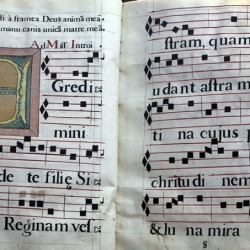 à framea Deus animã meã
manu canis unicã matre meã
Ad Miss Introi
E Gredi
mini
de te filię Si
Reginam ves
stram, quam
udant astra m
ti na cujus p
chritudi nem
& lu na mira
s